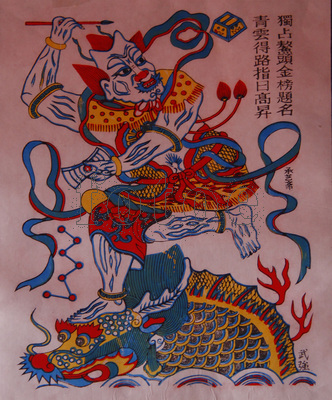 獨占鰲頭金榜題名
青雲得路指日高昇
武強